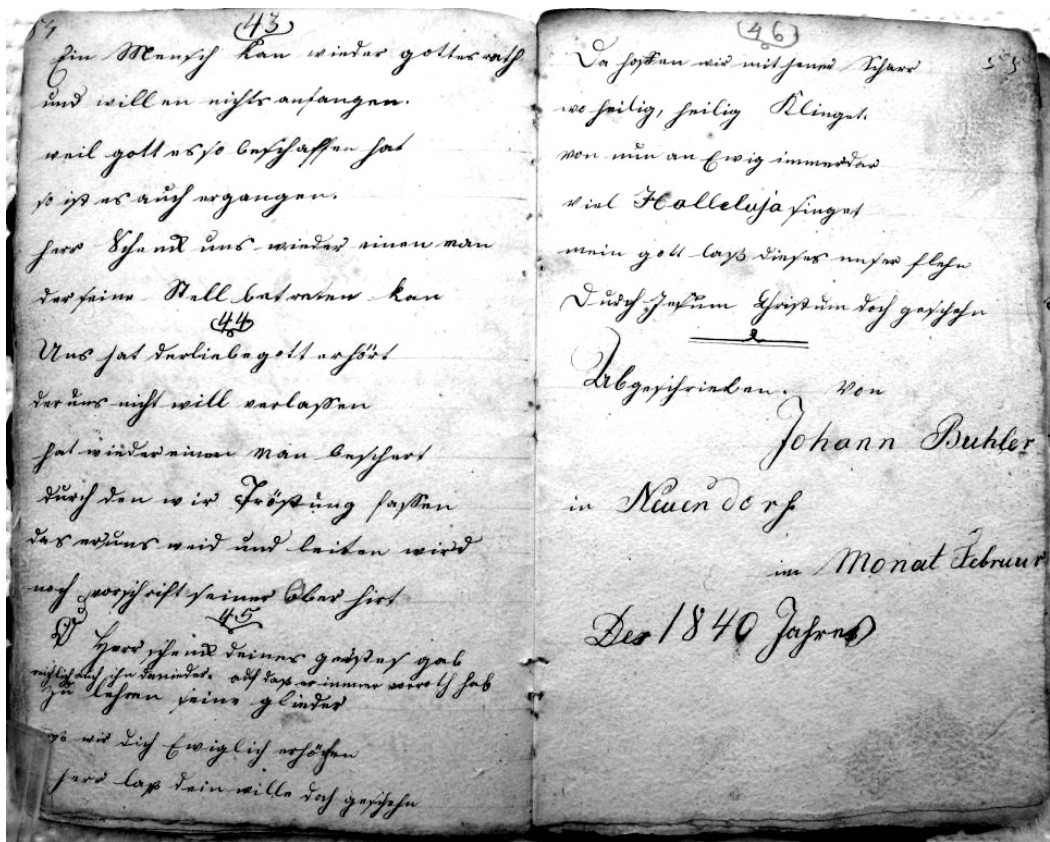 54
43
Ein Mensch kan wieder gottes rath
und willen nichts anfangen.
weil gott es so beschaffen hat
so ist es auch ergangen.
herr Schenk uns wieder einen man
der seine Stell betreten kan
44
Uns hat der liebe gott erhört
der uns nicht will verlassen
hat wieder einen man beschert
durch den wir Tröstung fassen
das er uns weid und leiten wird
nach vorschrift seiner Ober hirt
45
O Herr schenk deines geistes gab
reichlich auch ihn danieder. auf das er immer vorrath hab
zu lehren seine glieder
wir dich Ewiglich erhöhen
herr laß dein wille doch geschehn
46
55
Da hoffen wir mit jener Schaar
wo heilig, heilig Klinget.
von nun an Ewig immerdar
viel Halleluja singet
mein gott laß dieses unser flehn
Durch Jesum Christum doch geschehn
Abgeschrieben. von
Johann Buhler
in Neuendorf
im Monat Februar
Des 1840 Jahres